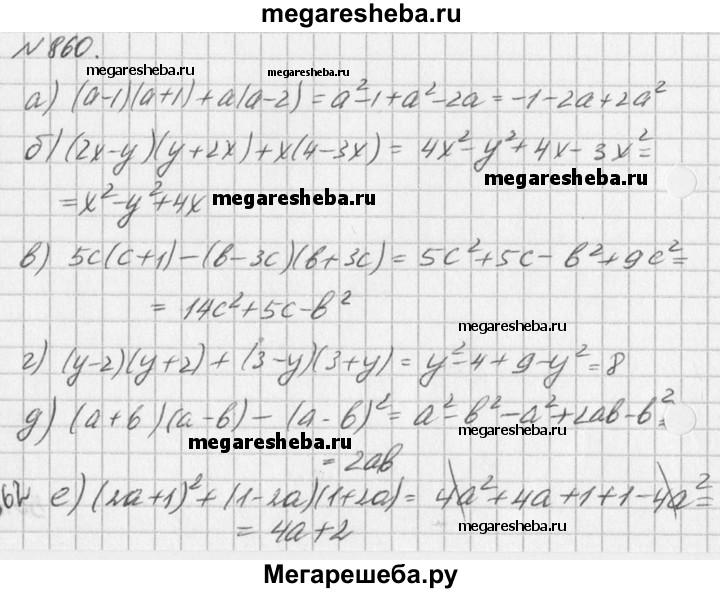 megaresheba.ru
№860.
megaresheba.ru megaresheba.ru
а) (a-1)(a+1)+a(a-2)=a²-1+a²-2a=-1-2a+2a²
б) (2x-y)(y+2x)+x(4-3x)= 4x²-y²+4x-3x²=
megaresheba.ru
=x²-y²+4x megaresheba.ru
в) 5c(c+1)-(b-3c)(b+3c)= 5c²+5c-b²+9c²=
= 14c²+5c-b²
megaresheba.ru
г) (y-2)(y+2)+(3-y)(3+y)= y²-4+9-y²=8
д) (a+b)(a-b)-(a-b)²= a²-b²-a²+2ab-b²=
megaresheba.ru
= 2ab
е) (2a+1)²+(1-2a)(1+2a)= 4a²+4a+1+1-4a²=
= 4a+2 megaresheba.ru
Мегарешеба.ру